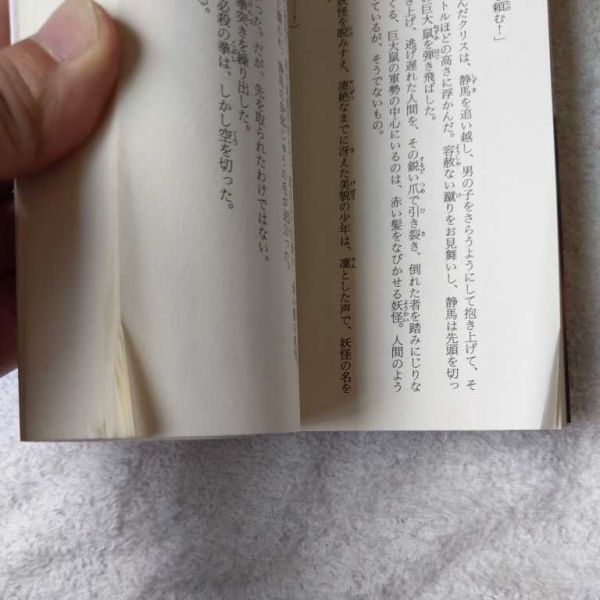 頼む！」
んだクリスは、静馬を追い越し、男の子をさらうようにして抱き上げて、そ
トルほどの高さに浮かんだ。容赦ない蹴りをお見舞いし、静馬は先頭を切っ
の巨大鼠を弾き飛ばした。
き上げ、逃げ遅れた人間を、その鋭い爪で引き裂き、倒れた者を踏みにじりな
くる、巨大鼠の軍勢の中心にいるのは、赤い髪をなびかせる妖怪。人間のよう
ているが、そうでないもの。
妖怪を睨みすえ、凄絶なまでに冴えた美貌の少年は、凜とした声で、妖怪の名を
…！」
った。だが、先を取られたわけではない。
拳突きを繰り出した。
必殺の拳は、しかし空を切った。